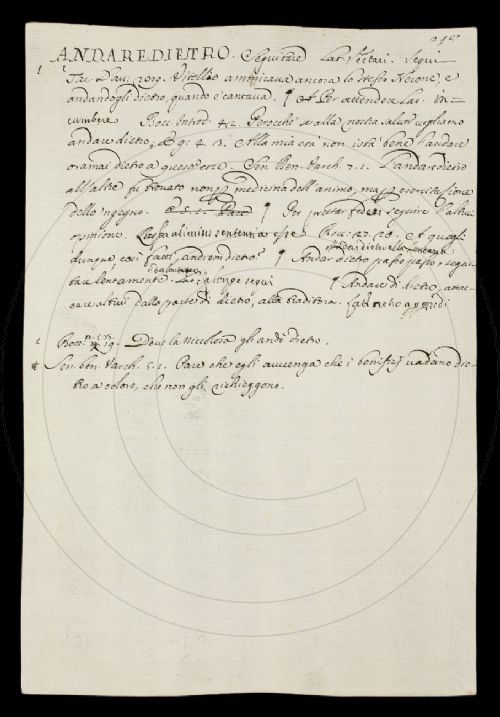 ANDARE DIETRO. Seguitare Lat. sectari. segui
Tac. Dav. 2019. Vitellio ammirava ancora lo stesso Nerone, e
andandogli dietro, quando e' cantava. ¶ A Per attendere Lat. in-
cumbere Bocc. Introd. 42. Perocchè se alla nostra salute vogliamo
andare dietro, & g. 4. 3. Alla mia età non istà bene l'andare
oramai dietro a queste Sen. Ben. Varch. 7. 1. L'andar dietro
all'altre fu trovato non p medicina dell'animo, ma p esercitazione
dello 'ngegno. ¶ Per prestar fede, seguire l'altrui
opinione. Lat. alicuius sententia Bocc. 27. 20. e quegli
dunque così fatti, andrem dietro? ¶ Andar dietro passo passo, segui-
tare lentamente. Lat. longe sequi ¶ Andare di dietro, attac-
care altrui dalla parte di dietro, alla traditora. Lat. retro aggredi
Bocc. n. 19. Dove la nicolosa gli andò dietro.
Sen. ben. Varch. 5. 1. Pare che egli avvenga che i benifizj vadano die-
tro a coloro, che non gli richieggono.